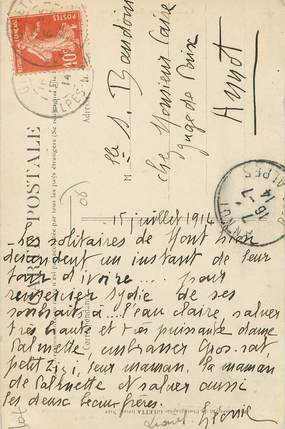 CARTE POSTALE
M lle S. Baudoin
chez Monsieur Caire
juge de Paix
Annot
15 juillet 1914
Les solitaires de Mont
descendent un instant de leur
tour d'ivoire... pour
remercier Lydie de ses
souhaits à ... l'eau claire, saluer
très haute et très puissante dame
Palmette embrasser Gros-rat,
petit Zizi, leur maman, la maman
de Palmette et saluer aussi
les deux beaux-frères.
Léonie
06
POSTES
10c
ANNOT
16-7
14
ALPES
GILETTA